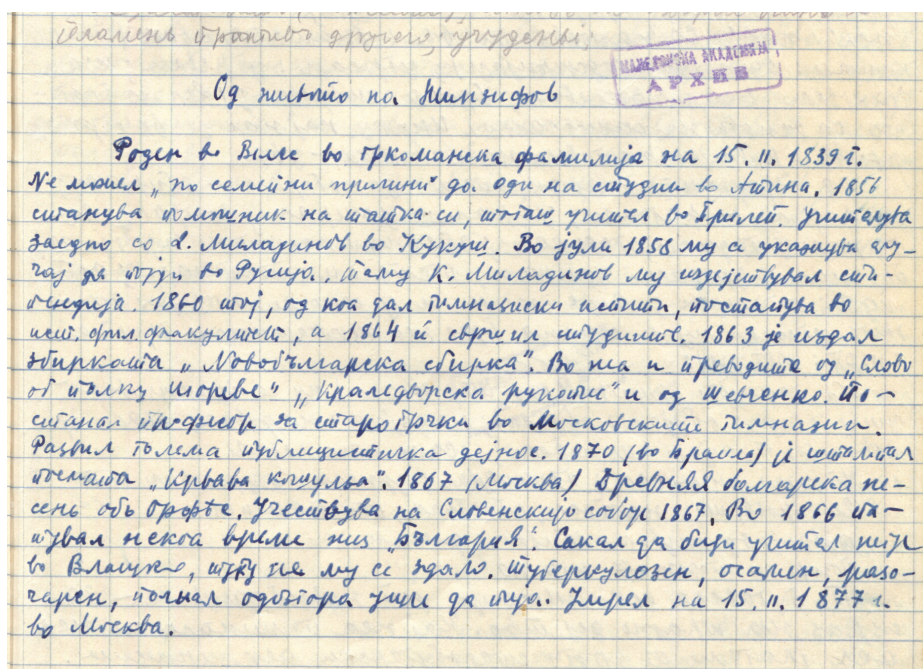 пламень противъ другего, учудены;
МАКЕДОНСКА АКАДЕМИЈА
АРХИВ
Од живото на Жинзифов
Роден во Велес во гркоманска фамилија на 15. II. 1839 г.
Не можел „по семејни причини" да оди на студии во Атина. 1856
станува помошник на татка си, тогаш учител во Прилеп. Учителува
заедно со Д. Миладинов во Кукуш. Во јули 1858 му се укажува слу-
чај да појди во Русија. Таму К. Миладинов му издејствувал сти-
пендија. 1860 тој, од коа дал гимназиски испити, постапува во
ист. фил. факултет, а 1864 и свршил студиите. 1863 је издал
збирката „Новобългарска сбирка". Во неа и преводите од „Слово
об пълку Игореве" „Краледворска рукопис" и од Шевченко. По-
станал професор за старогрчки во Московските гимназии.
Развил голема публицистичка дејнос. 1870 (во Браила) је штампал
поемата „Кръвава кошуля". 1867 (Москва) Древняя болгарска пе-
сень объ Орфѣе. Учествува на Словенскијо собор 1867. Во 1866 па-
тувал некоа време низ „България". Сакал да биди учител негде
во Влашко, туку не му се здало. Туберкулозен, осамен, разо-
чаран, почнал одозгора уще да пија. Умрел на 15. II. 1877 г.
во Москва.